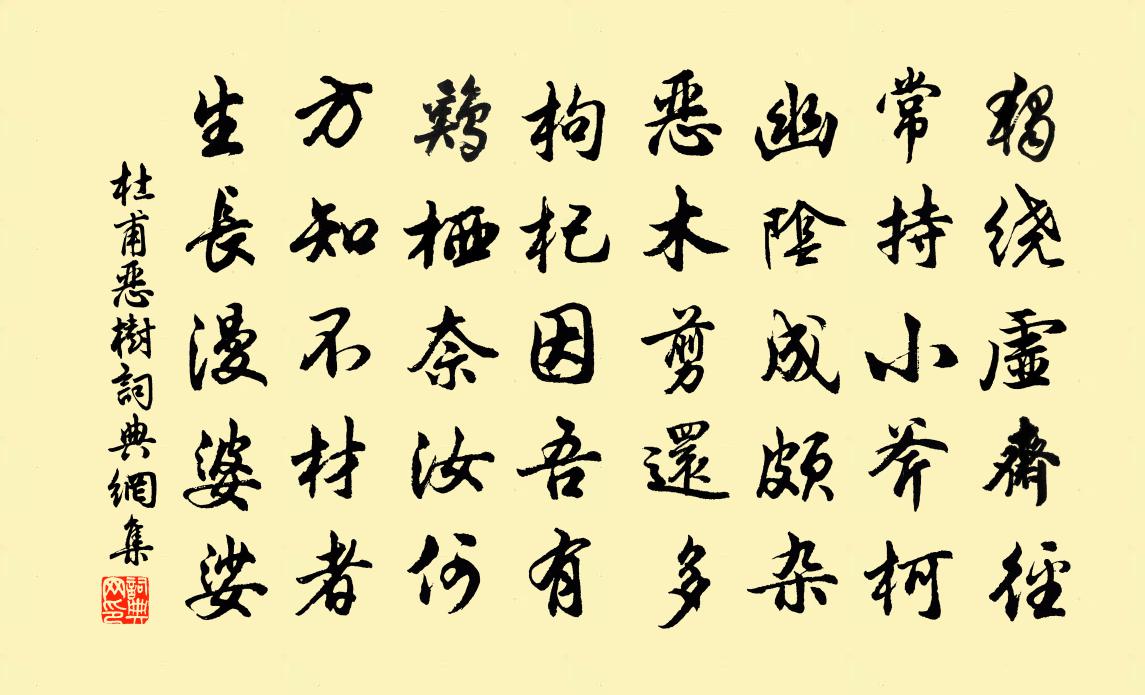 獨绕虛齋徑
常持小斧柯
幽陰成頗杂
惡木剪還多
枸杞因吾有
鷄栖奈汝何
方知不材者
生長漫婆娑
杜甫惡樹詞典網集
詞典网印